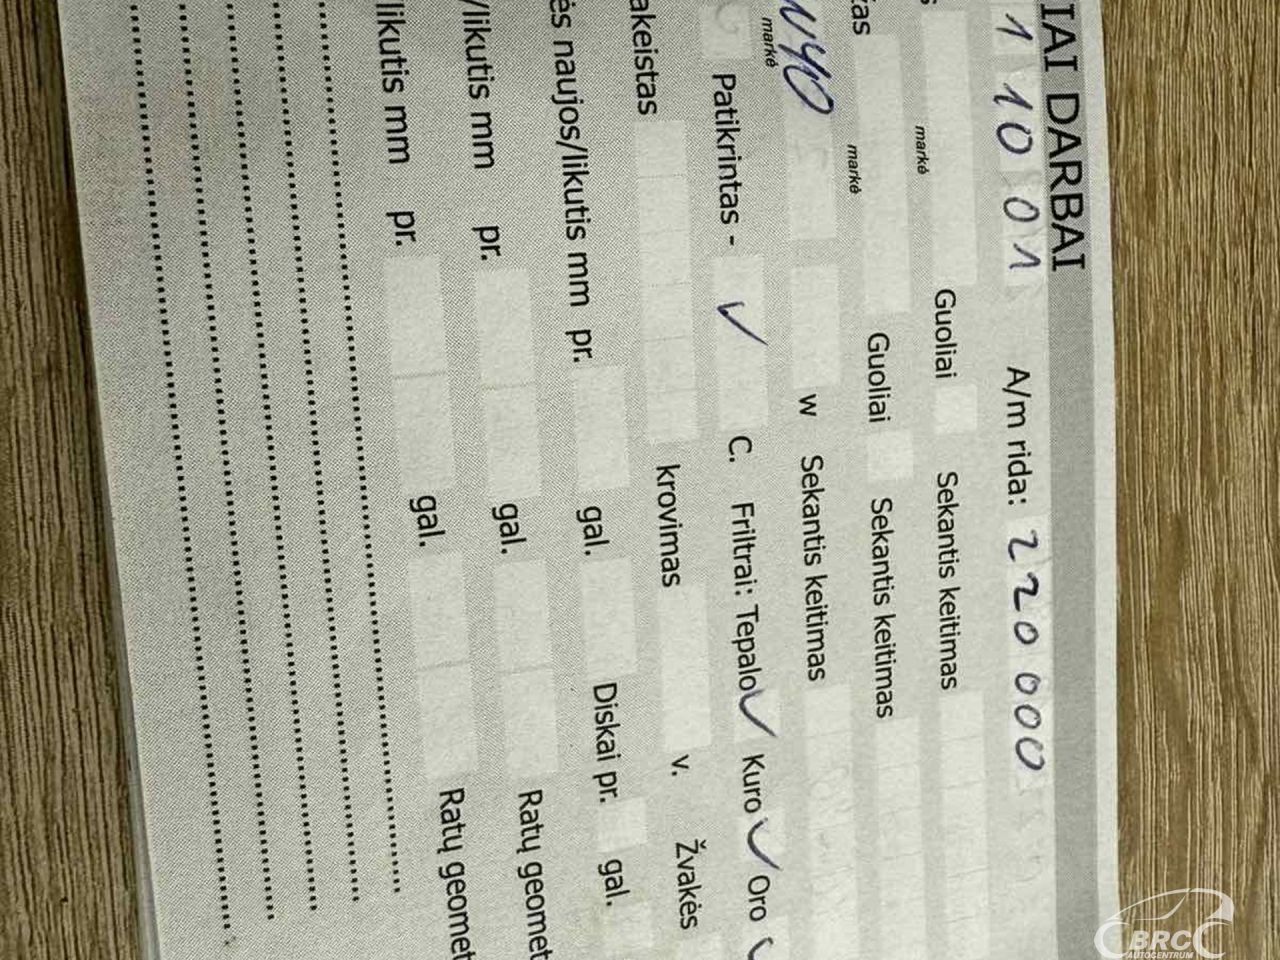 IAI DARBAI
1 10 01 A/m rida: 220 000
markė Guoliai Sekantis keitimas
kas markė Guoliai Sekantis keitimas
W40 markė w Sekantis keitimas
Patikrintas - ✓ C. Friltrai: Tepalo ✓ Kuro ✓ Oro ✓
akeistas krovimas v. Žvakės
ės naujos/likutis mm pr. gal. Diskai pr. gal.
/likutis mm pr. gal. Ratų geomet
likutis mm pr. gal. Ratų geomet
BRC
AUTOCENTRUM